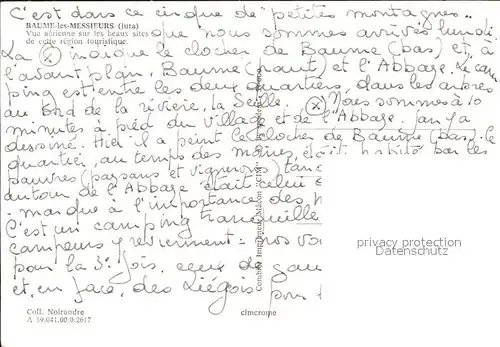 C'est dans ce cirque de "petites montagnes"
BAUME-les-MESSIEURS (Jura)
Vue aérienne sur les beaux sites
de cette région touristique.
que nous sommes arrivés lundi.
La (x) marque le clocher de Baume (bas) et, à
l'avant plan, Baume (haut) et l'Abbaye. Le cam
ping est entre les deux quartiers, dans les arbres
au bord de la rivière, la Seille. (x) Nous sommes à 10
minutes à pied du village et de l'Abbaye. Jan y a
dessiné. Hier il a peint le clocher de Baume (bas). le
quartier, au temps des moines, était habité par les
pauvres (paysans et vignerons) tan
autour de l'Abbaye était celui
marque à l'importance des
C'est un camping tranquille
campeurs y reviennent = nos voi
pour la 3e fois, ceux de gau
et, en face, des Liégeois pour
privacy protection
Datenschutz
Combier Imprimeur Mâcon "CIM"
Coll. Noirandre
A 39.041.00.0.2617
cimcrome